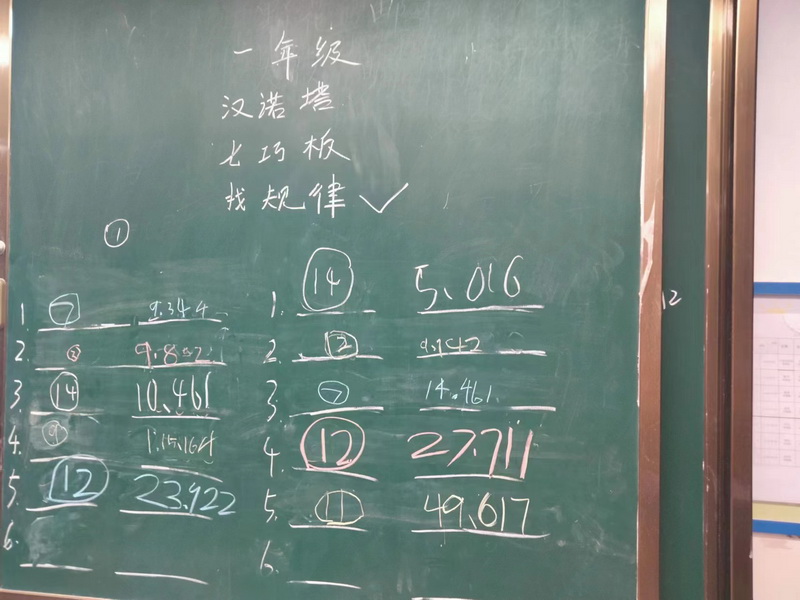 一年级
汉诺塔
七巧板
找规律 ✓
①
1. ⑦ 9.344
2. 9.8
3. ⑭ 10.461
4. ⑨ 1.15.164
5. ⑫ 23.922
6.
1. ⑭ 5.016
2. ⑫ 9.942
3. ⑦ 14.461
4. ⑫ 27.711
5. ⑪ 49.617
6.
12